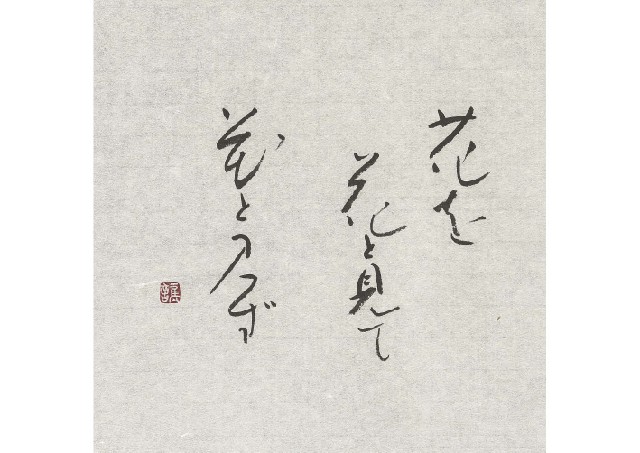 花を
花と見て
花と見ず